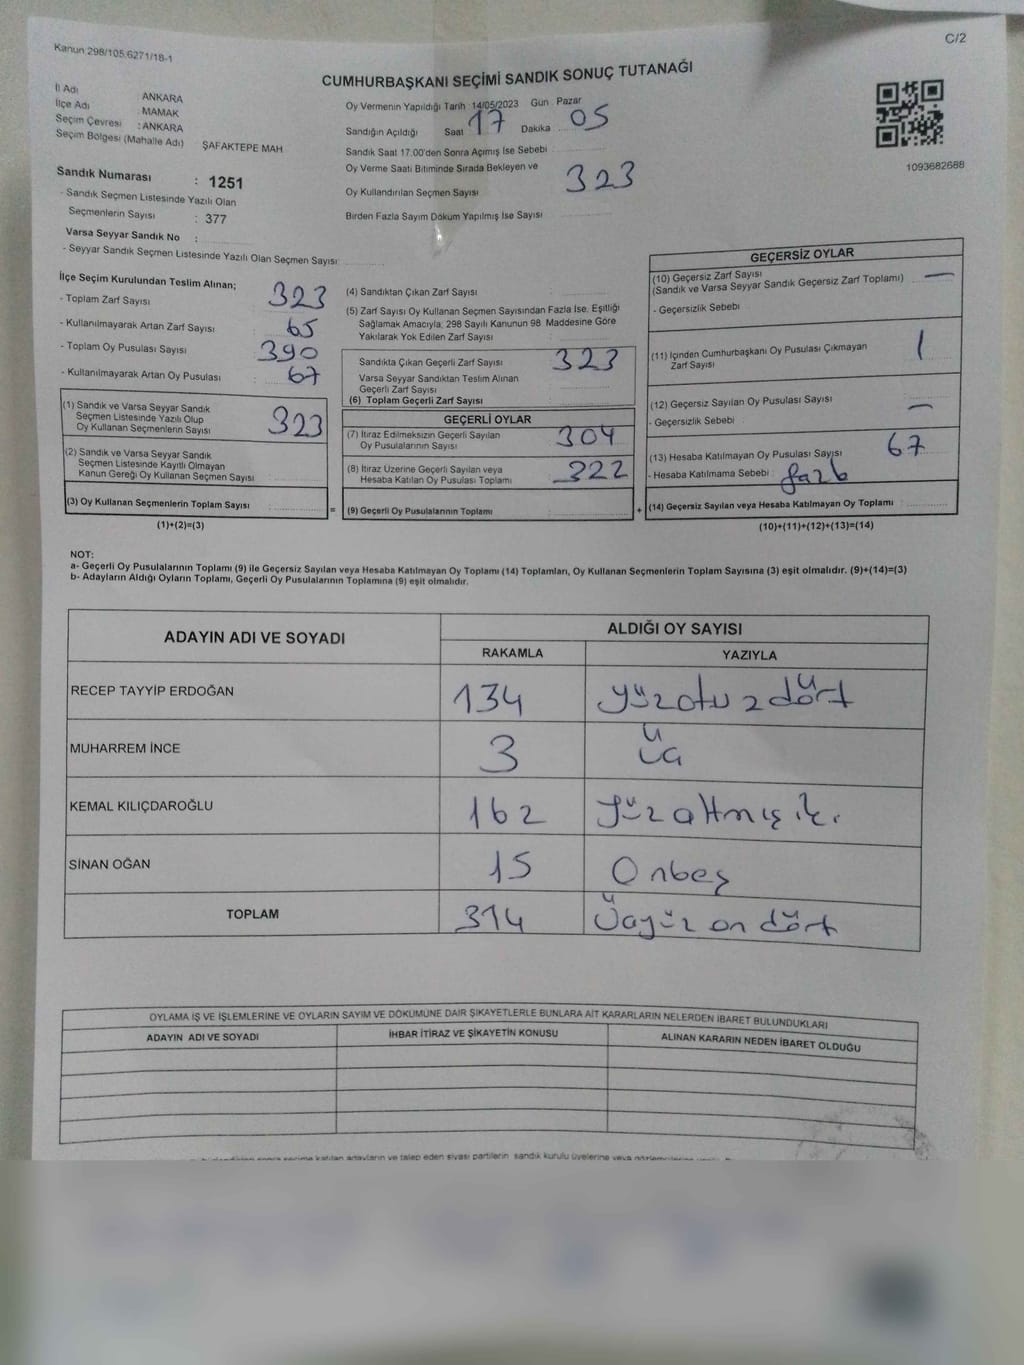 Kanun 298/105.6271/18-1
C/2
CUMHURBAŞKANI SEÇİMİ SANDIK SONUÇ TUTANAĞI
İl Adı ANKARA
İlçe Adı : MAMAK
Seçim Çevresi : ANKARA
Seçim Bölgesi (Mahalle Adı) ŞAFAKTEPE MAH
Oy Vermenin Yapıldığı Tarih 14/05/2023 Gün Pazar
Sandığın Açıldığı Saat 17 Dakika 05
Sandık Saat 17.00'den Sonra Açımış İse Sebebi
Oy Verme Saati Bitiminde Sırada Bekleyen ve
Oy Kullandırılan Seçmen Sayısı 323
Birden Fazla Sayım Döküm Yapılmış İse Sayısı
1093682688
Sandık Numarası : 1251
- Sandık Seçmen Listesinde Yazılı Olan
Seçmenlerin Sayısı : 377
Varsa Seyyar Sandık No :
- Seyyar Sandık Seçmen Listesinde Yazılı Olan Seçmen Sayısı:
İlçe Seçim Kurulundan Teslim Alınan;
- Toplam Zarf Sayısı 323
- Kullanılmayarak Artan Zarf Sayısı : 65
- Toplam Oy Pusulası Sayısı 390
- Kullanılmayarak Artan Oy Pusulası : 67
(1) Sandık ve Varsa Seyyar Sandık
Seçmen Listesinde Yazılı Olup
Oy Kullanan Seçmenlerin Sayısı 323
(2) Sandık ve Varsa Seyyar Sandık
Seçmen Listesinde Kayıtlı Olmayan
Kanun Gereği Oy Kullanan Seçmen Sayısı :
(3) Oy Kullanan Seçmenlerin Toplam Sayısı :
(1)+(2)=(3)
=
(4) Sandıktan Çıkan Zarf Sayısı :
(5) Zarf Sayısı Oy Kullanan Seçmen Sayısından Fazla İse, Eşitliği
Sağlamak Amacıyla; 298 Sayılı Kanunun 98. Maddesine Göre
Yakılarak Yok Edilen Zarf Sayısı :
Sandıkta Çıkan Geçerli Zarf Sayısı 323
Varsa Seyyar Sandıktan Teslim Alınan
Geçerli Zarf Sayısı
(6) Toplam Geçerli Zarf Sayısı
GEÇERLİ OYLAR
(7) İtiraz Edilmeksizin Geçerli Sayılan
Oy Pusulalarının Sayısı 304
(8) İtiraz Üzerine Geçerli Sayılan veya
Hesaba Katılan Oy Pusulası Toplamı 322
(9) Geçerli Oy Pusulalarının Toplamı
+
GEÇERSİZ OYLAR
(10) Geçersiz Zarf Sayısı
(Sandık ve Varsa Seyyar Sandık Geçersiz Zarf Toplamı) —
- Geçersizlik Sebebi
(11) İçinden Cumhurbaşkanı Oy Pusulası Çıkmayan
Zarf Sayısı 1
(12) Geçersiz Sayılan Oy Pusulası Sayısı —
- Geçersizlik Sebebi
(13) Hesaba Katılmayan Oy Pusulası Sayısı 67
- Hesaba Katılmama Sebebi :
(14) Geçersiz Sayılan veya Hesaba Katılmayan Oy Toplamı :
(10)+(11)+(12)+(13)=(14)
NOT:
a- Geçerli Oy Pusulalarının Toplamı (9) ile Geçersiz Sayılan veya Hesaba Katılmayan Oy Toplamı (14) Toplamları, Oy Kullanan Seçmenlerin Toplam Sayısına (3) eşit olmalıdır. (9)+(14)=(3)
b- Adayların Aldığı Oyların Toplamı, Geçerli Oy Pusulalarının Toplamına (9) eşit olmalıdır.
ADAYIN ADI VE SOYADI ALDIĞI OY SAYISI
RAKAMLA YAZIYLA
RECEP TAYYİP ERDOĞAN 134 yüzotuzdört
MUHARREM İNCE 3 Üç
KEMAL KILIÇDAROĞLU 162 yüzaltmışiki
SİNAN OĞAN 15 Onbeş
TOPLAM 314 Üçyüz on dört
OYLAMA İŞ VE İŞLEMLERİNE VE OYLARIN SAYIM VE DÖKÜMÜNE DAİR ŞİKAYETLERLE BUNLARA AİT KARARLARIN NELERDEN İBARET BULUNDUKLARI
ADAYIN ADI VE SOYADI İHBAR İTİRAZ VE ŞİKAYETİN KONUSU ALINAN KARARIN NEDEN İBARET OLDUĞU